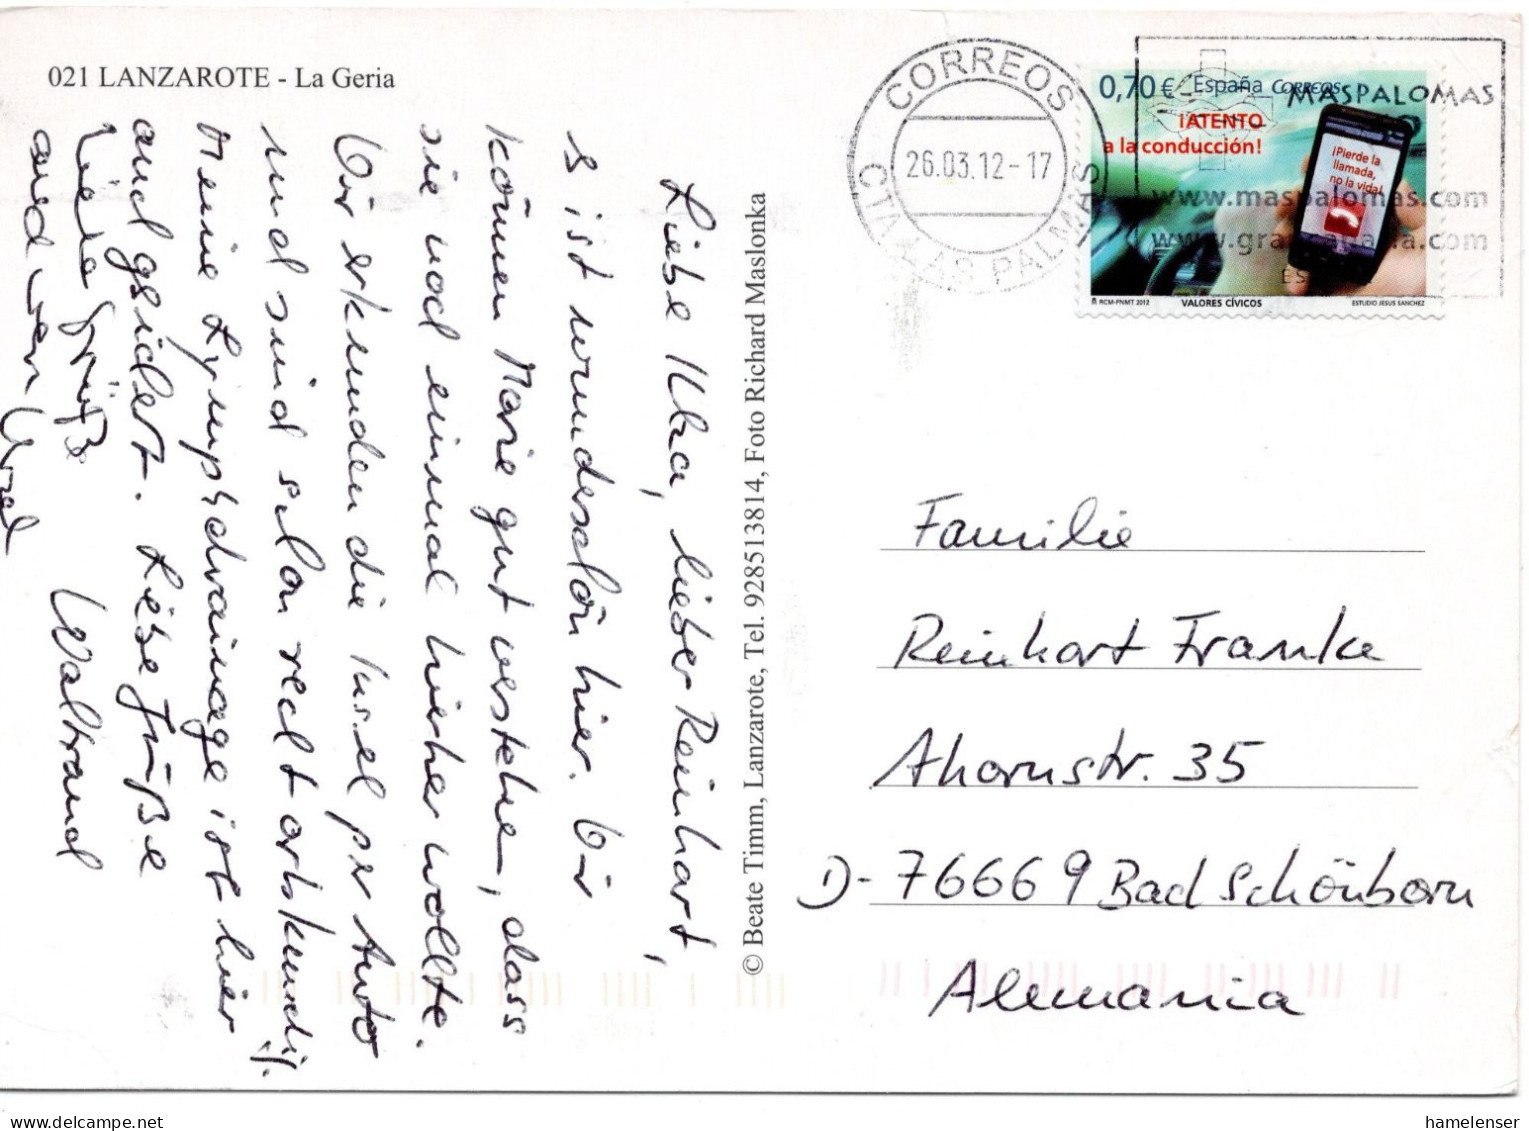 021 LANZAROTE - La Geria
Liebe Ilka, lieber Reinhart,
es ist wunderschön hier. Wir
können Marie gut verstehen, dass
sie noch einmal hierher wollte.
Wir erkunden die Insel per Auto
und sind schon recht ortskundig.
Meine Lymphdrainage ist hier
auch gesichert. Liebe Grüße
Waltraud
Liebe Grüße
und
© Beate Timm, Lanzarote, Tel. 928513814, Foto Richard Maslonka
CORREOS
26.03.12-17
CTA LAS PALMAS
0,70 € España CORREOS
¡ATENTO
a la conducción!
¡Pierde la
llamada,
no la vida!
RCM-FNMT 2012 VALORES CÍVICOS ESTUDIO JESUS SANCHEZ
MASPALOMAS
www.maspalomas.com
www.grancanaria.com
Familie
Reinhart Franke
Ahornstr. 35
D-76669 Bad Schönborn
Alemania
hamelenser